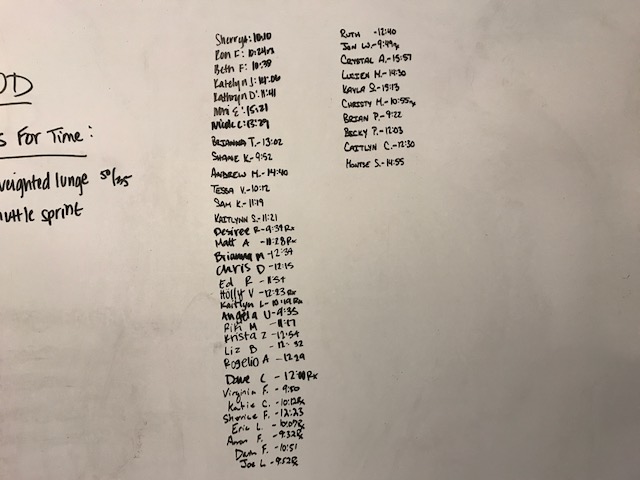 OD
s For Time:
weighted lunge 50/35
uttle sprint
Sherry A: 10:10
Ron F: 10:24rx
Beth F: 10:38
Katelyn J: 14:06
Kathryn D: 11:41
15:21
Nicole C: 13:29
Brianna T.- 13:02
Shane K- 9:52
Andrew M.- 14:40
Tessa V.- 10:12
Sam K.- 11:19
Kaitlynn S.- 11:21
Desiree R- 9:39Rx
Matt A - 11:28Rx
Brianna M - 12:34
Chris D - 12:15
Ed R - 11:57
Holly V - 12:23 Rx
Kaitlyn L- 10:19Rx
Angela U- 9:35
Riki M - 11:17
Krista Z - 12:54
Liz B - 12:32
Rogelio A - 12:29
Dave C - Rx
Virginia F. - 9:50
Katie C. - 10:12Rx
Sherrice F. - 12:23
Eric L. - 10:07Rx
Aaron F. - 9:32Rx
F. - 10:51
Joe L - 9:52Rx
Ruth - 12:40
Jon W.- 9:49rx
Crystal A.- 15:57
Lucien M.- 14:30
Kayla S.- 15:13
Christy M.- 10:55rx
Brian P.- 9:22
Becky P.- 12:03
Caitlyn C.- 12:30
Montse S.- 14:55